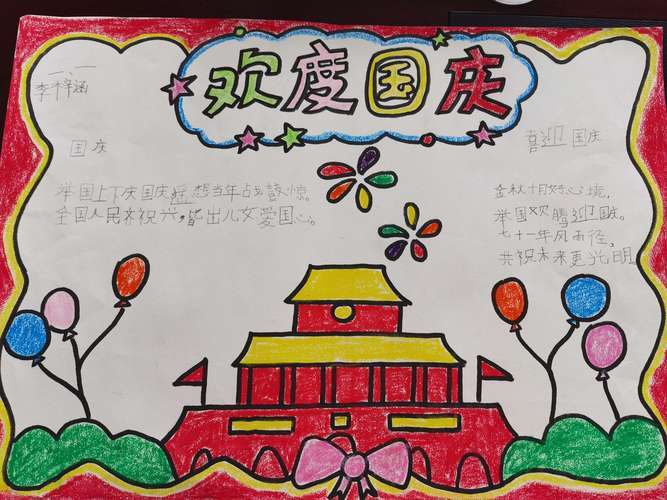 欢度国庆
一、一
李梓涵
国庆
举国上下庆国庆，想当年占惊。
全国人民齐祝兴，皆出儿女爱国心。
喜迎国庆
金秋十月好心境，
举国欢腾迎国庆。
七十一年风雨径，
共祝未来更光明